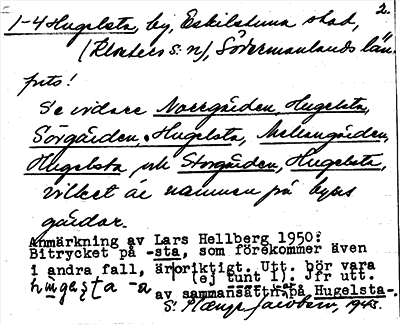 2.
1-4 Hugelsta, by, Eskilstuna stad,
(Klosters sn), Södermanlands län.
prets!
Se vidare Norrgården, Hugelsta,
Sörgården, Hugelsta, Mellangården,
Hugelsta och Storgården, Hugelsta,
vilket är namnen på byns
gårdar.
Anmärkning av Lars Hellberg 1950:
Bitrycket på -sta, som förekommer även
i andra fall, är oriktigt. Utt. bör vara
(ej tunt l). Jfr utt.
av sammansättn. på Hugelsta-.
S. Jacobson, 1945.